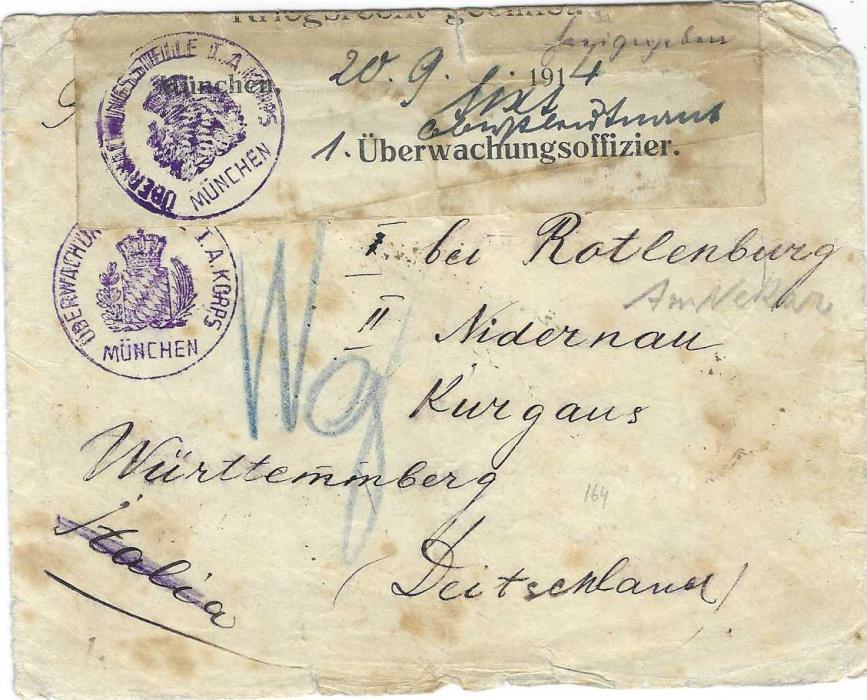 Kriegsrecht geöffnet.
freigegeben
München, 20. 9. 1914
1. Überwachungsoffizier.
ÜBERWACHUNGSSTELLE I. A. KORPS
MÜNCHEN
I. A. KORPS
MÜNCHEN
I bei Rotlenburg
Am Nekar
II Nidernau
Kurgaus
Wg
Württemmberg
164
Italia
(Deitschland)
1.